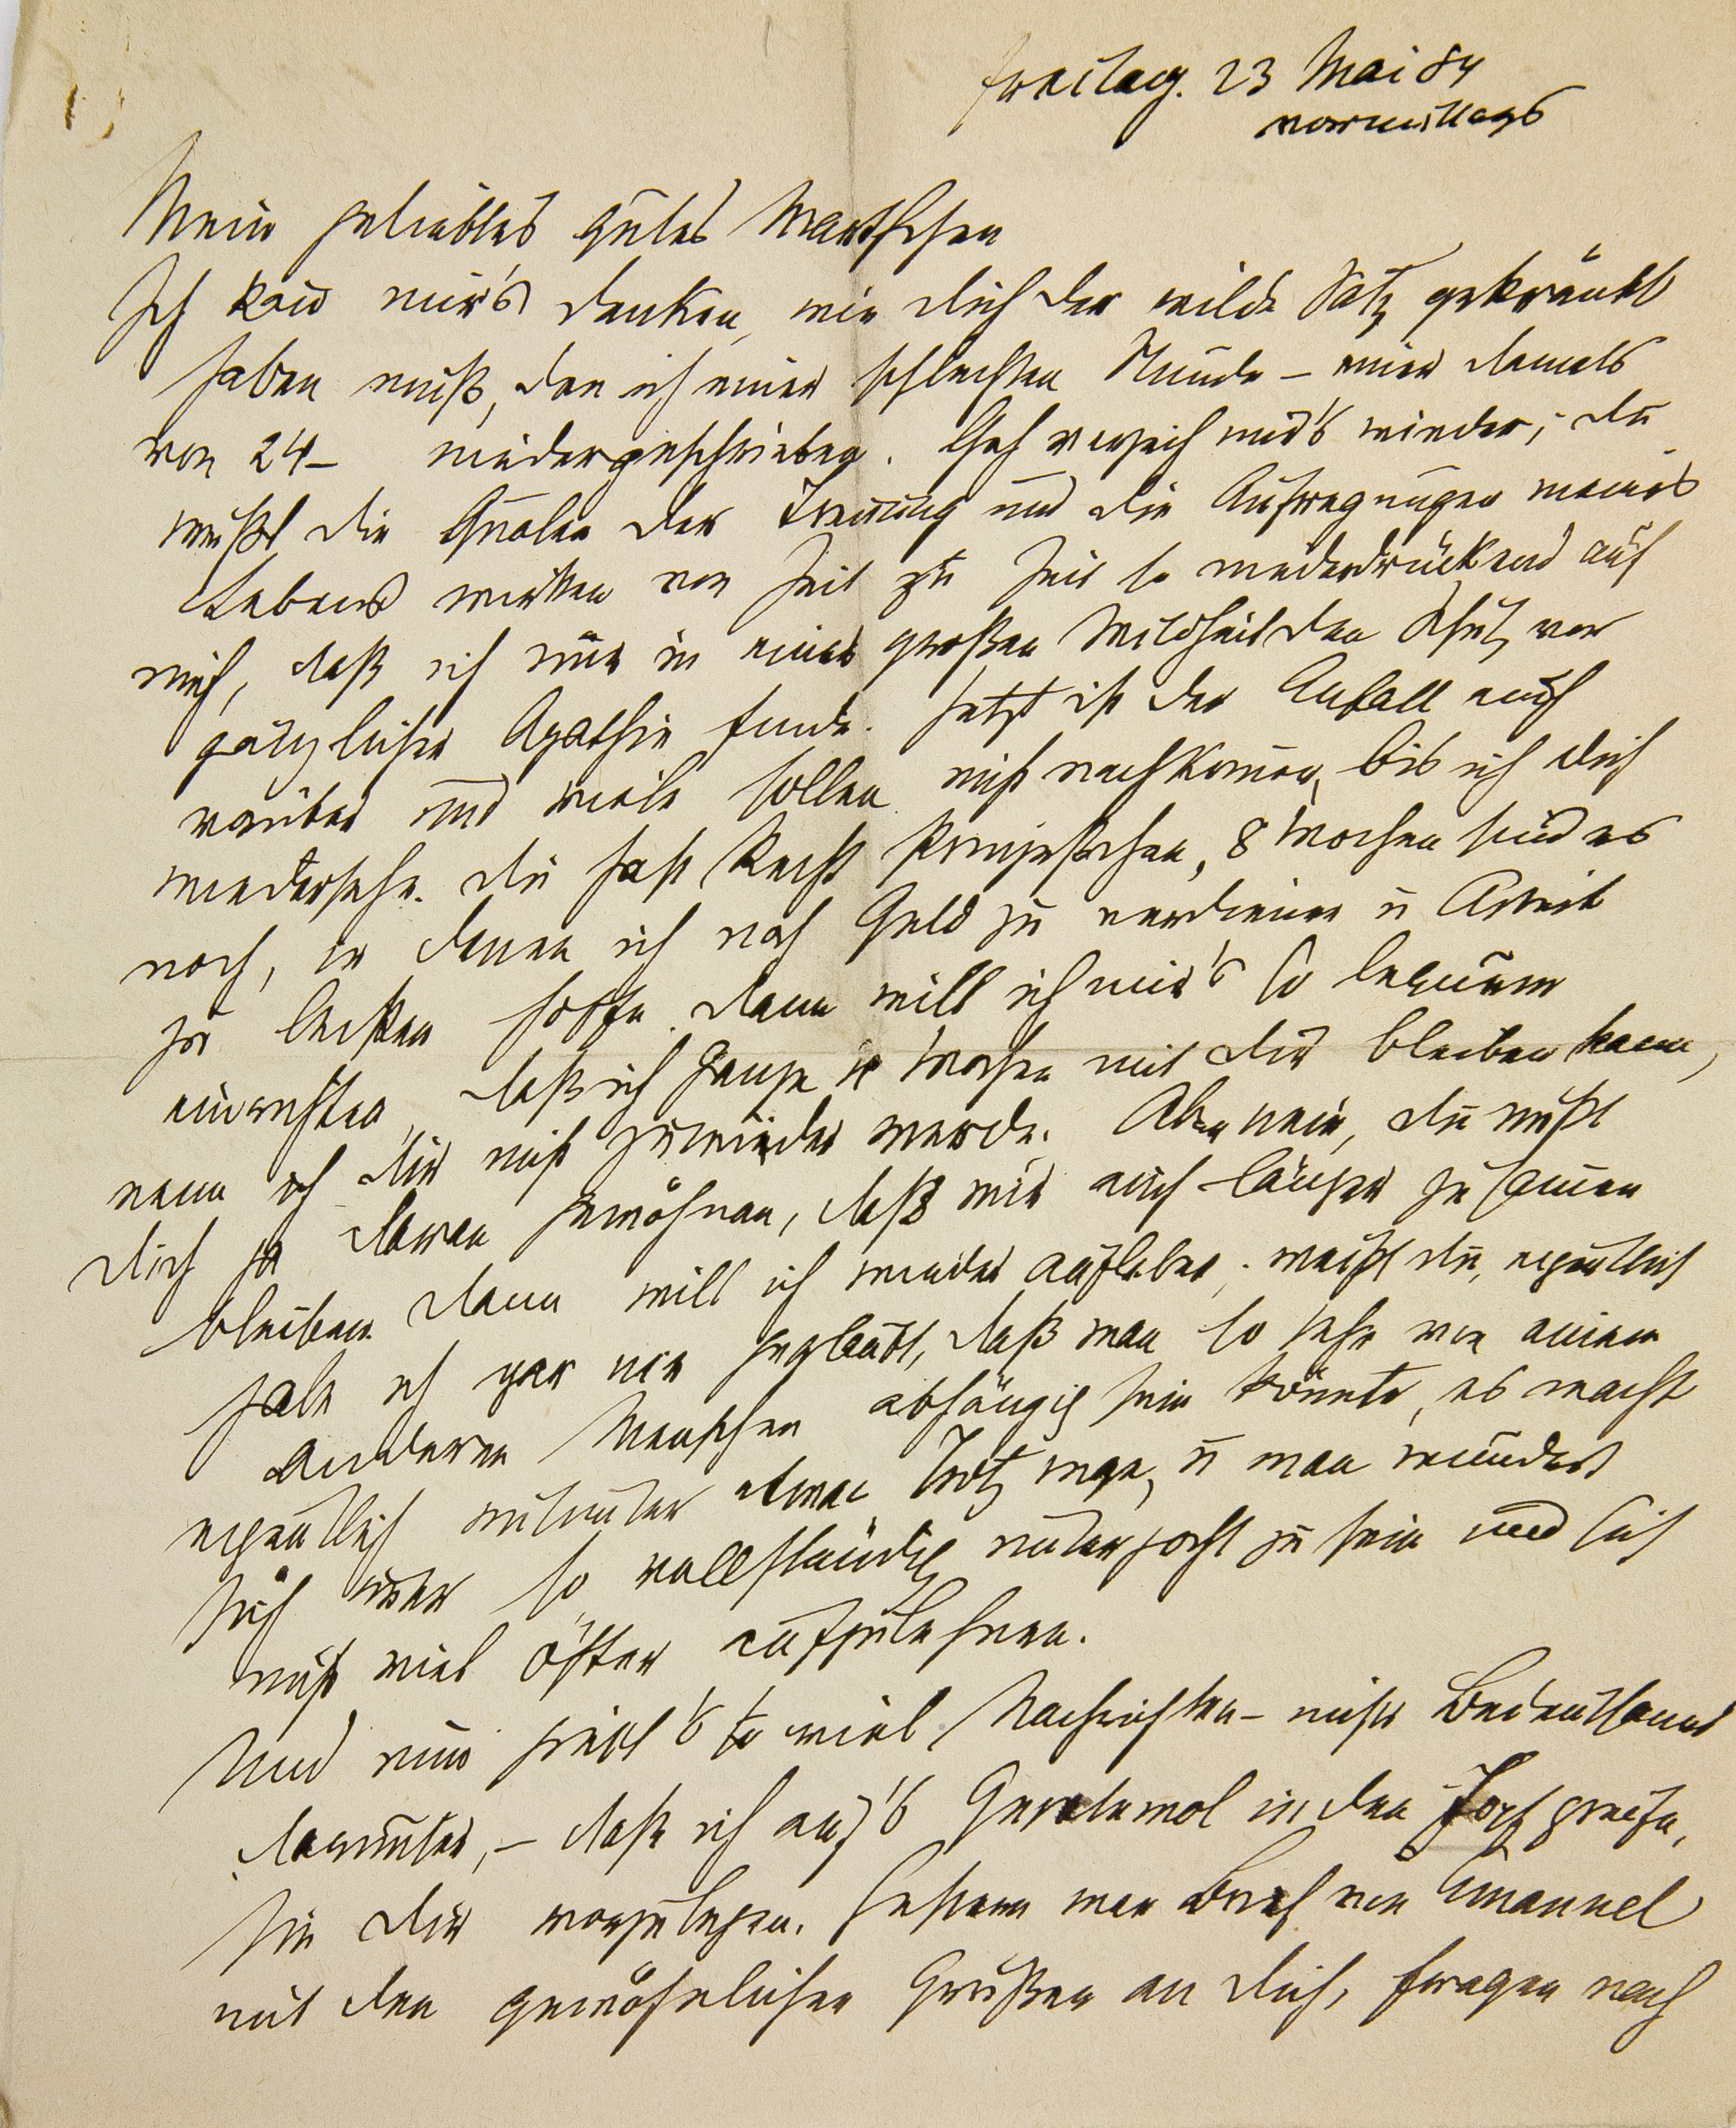 Freitag. 23 Mai 84
vormittags
Mein geliebtes gutes Marthchen
Ich kañ mir's denken, wie dich der wilde Satz gekränkt
haben muß, den ich einer schlechten Stunde – einer damals
von 24 – niedergeschrieben. Geh verzeih mir's wieder; du
weißt die Qualen der Treñung und die Aufregungen meines
Lebens wirken von Zeit zu Zeit so niederdrückend auf
mich, daß ich nur in einer großen Wildheit den Schutz vor
gänzlicher Apathie finde. Jetzt ist der Anfall auch
vorüber und viele sollen nicht nachkom̄en, bis ich dich
wiedersehe. Du hast Recht Prinzeßchen, 8 Wochen sind es
noch, in denen ich noch Geld zu verdienen u Arbeit
zu leisten hoffe. Dann will ich mir's so bequem
einrichten, daß ich ganze Wochen mit dir bleiben kann,
wenn ich dir nicht zuwieder werde. Aber nein, du mußt
dich ja daran gewöhnen, daß wir auch länger zusam̄en
bleiben. Dann will ich wieder aufleben; weißt du, eigentlich
hab ich gar nie geglaubt, daß man so sehr von einem
anderen Menschen abhängig sein könnte, es macht
eigentlich mitunter etwas Trotz rege, u man wundert
sich über so vollständig unterjocht zu sein und sich
nicht viel öfter aufzulehnen.
Und nun giebt's so viel Nachrichten – nichts Bedeutsames
darunter, – daß ich auf's Geratewol in den Topf greife,
sie dir vorzulegen. Gestern war Brief von Emanuel
mit den gewöhnlichen Grüßen an dich, Fragen nach